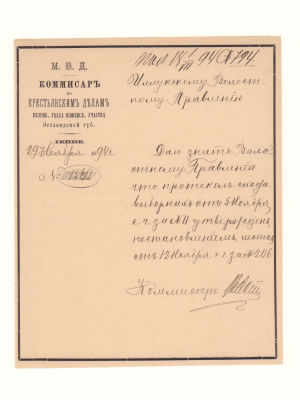 Пол. 18 1/XII 94 № 794.
М. В. Д.
КОММИСАРЪ
по
КРЕСТЬЯНСКИМЪ ДѢЛАМЪ
УѢЗДА УЧАСТКА
Эстляндской губ.
29 Ноября 1894 г.
№ 1560
Волост-
ному Правленію
Даю знать Воло-
стному Правленію
что протоколъ схода
выборныхъ отъ 5 Ноября
с. г. за № 11 утвержденъ
постановленіемъ, моимъ
отъ 12 Ноября с. г. за № 206.
Коммисаръ